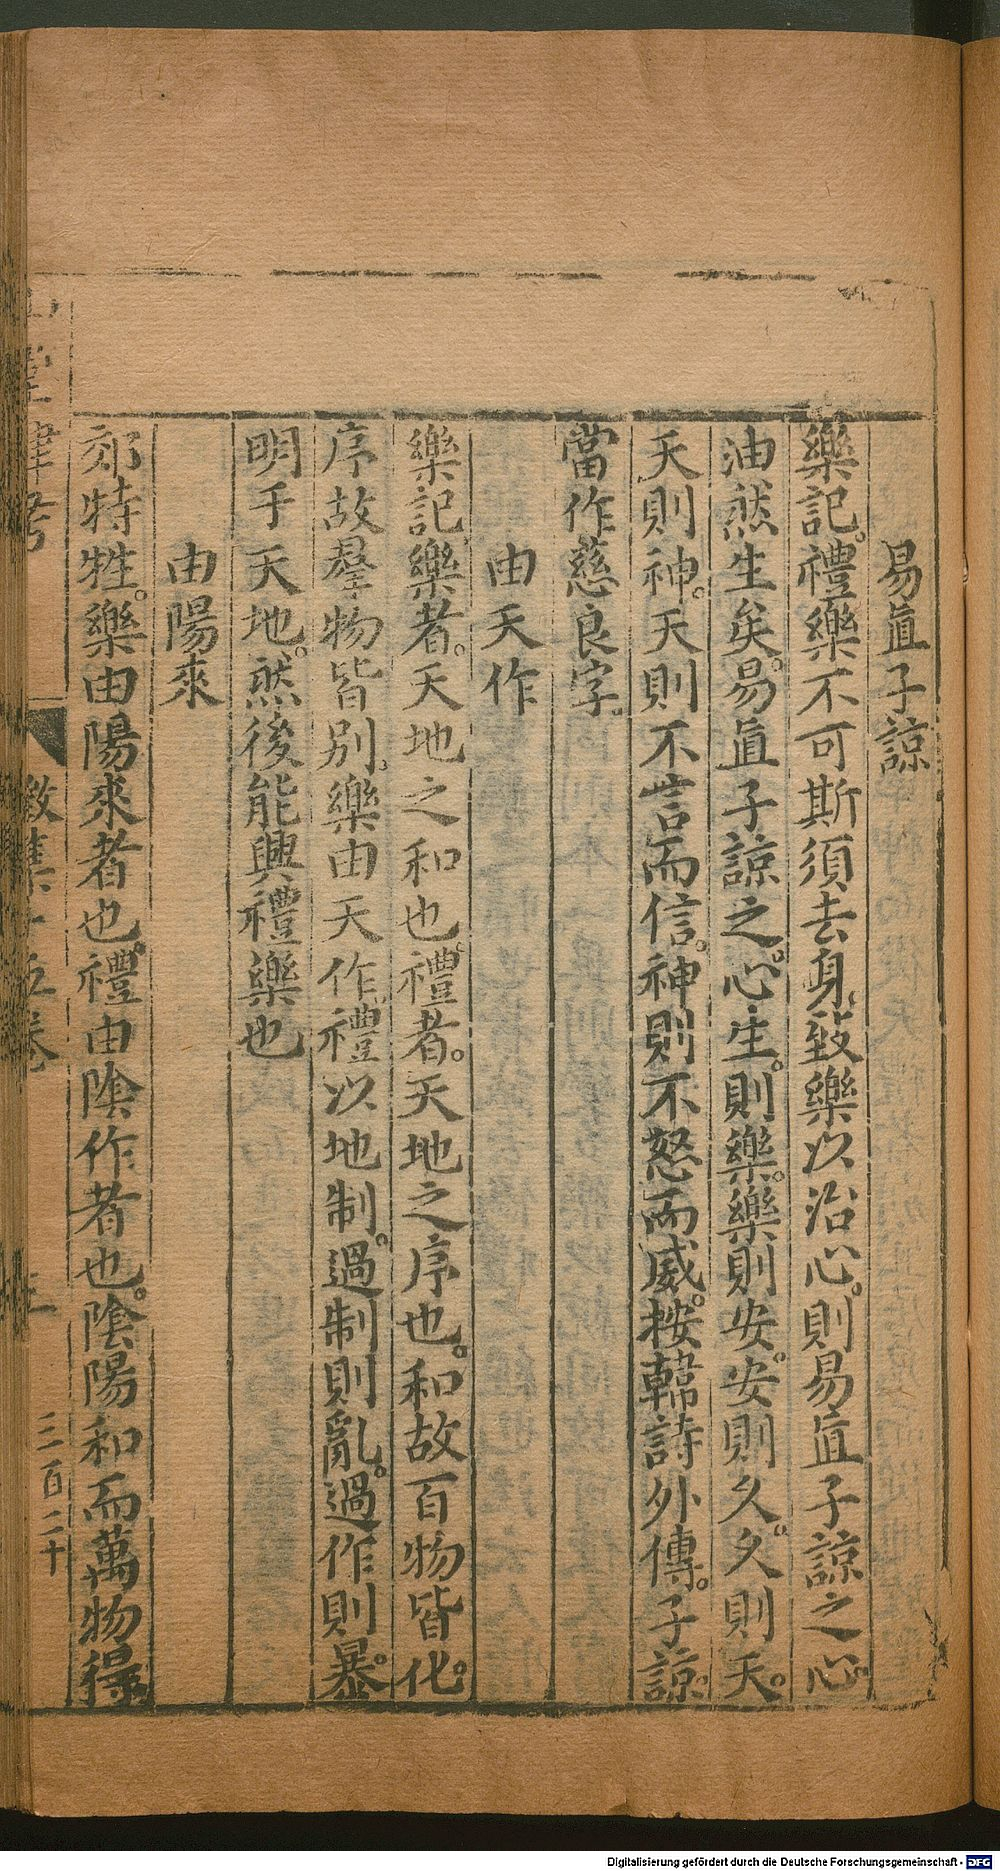 易直子諒
樂記。禮樂不可斯須去身。致樂以治心。則易直子諒之心
油然生矣。易直子諒之。心生。則樂。樂則安。安則久。久則天。
天則神。天則不言而信。神則不怒而威。按韓詩外傳。子諒。
當作慈良字。
由天作
樂記。樂者。天地之和也。禮者。天地之序也。和故百物皆化。
序故羣物皆別。樂由天作。禮以地制。過制則亂。過作則暴。
明于天地。然後能興禮樂也
由陽來
郊特牲。樂由陽來者也。禮由陰作者也。陰陽和而萬物得
堂肆考
徵集十五卷
三百二十
Digitalisierung gefördert durch die Deutsche Forschungsgemeinschaft - DFG